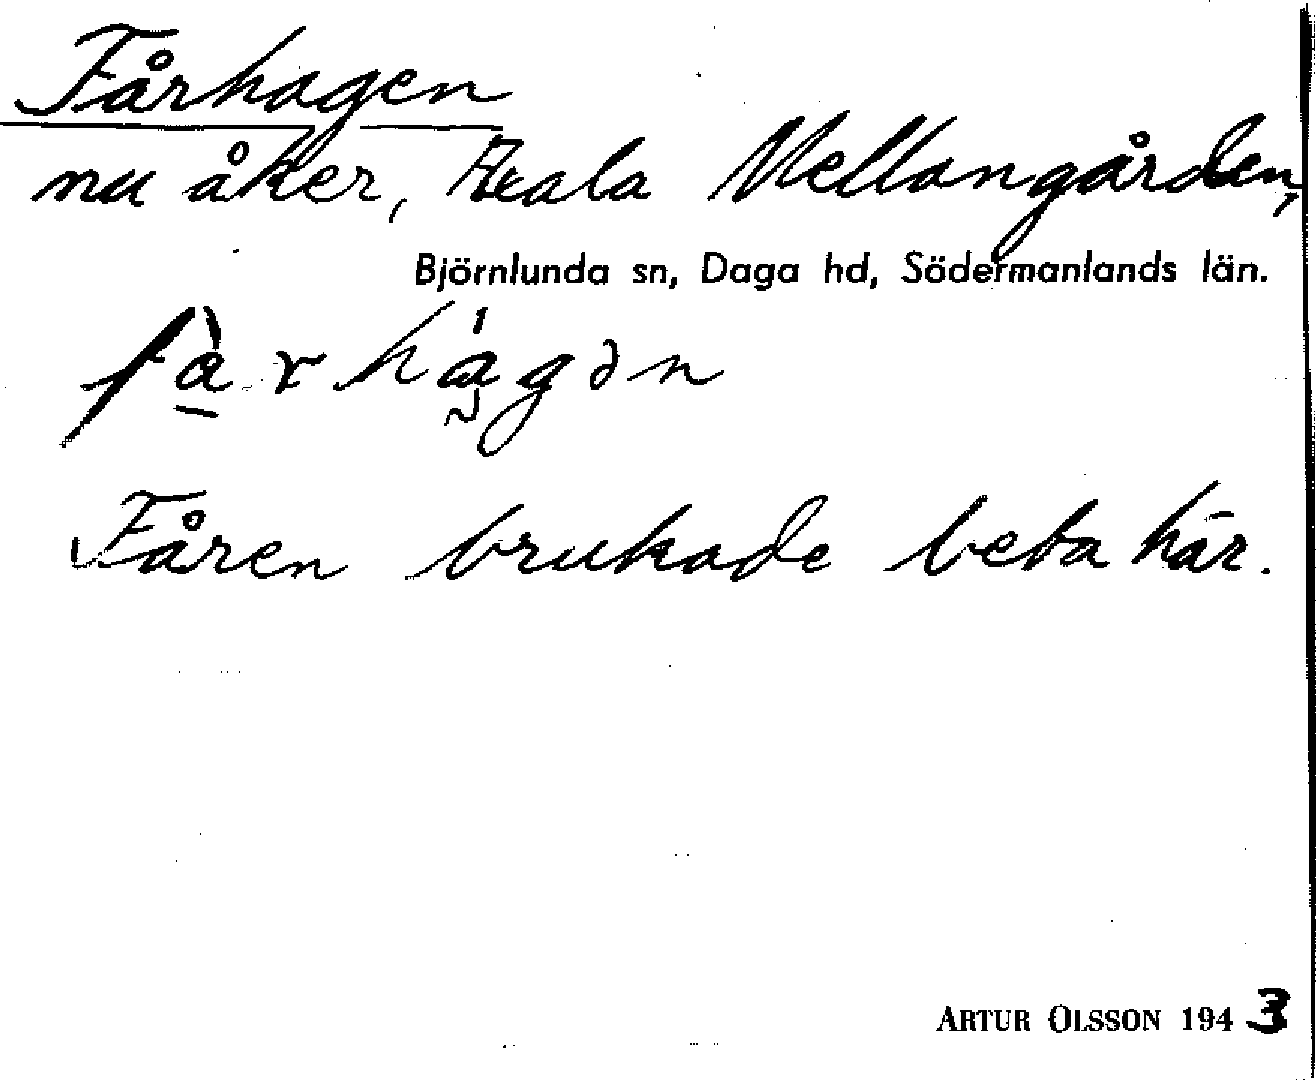 Fårhagen
nu åker, Axala Mellangården,
Björnlunda sn, Daga hd, Södermanlands län.
fàrhágən
Fåren brukade beta här.
ARTUR OLSSON 1943